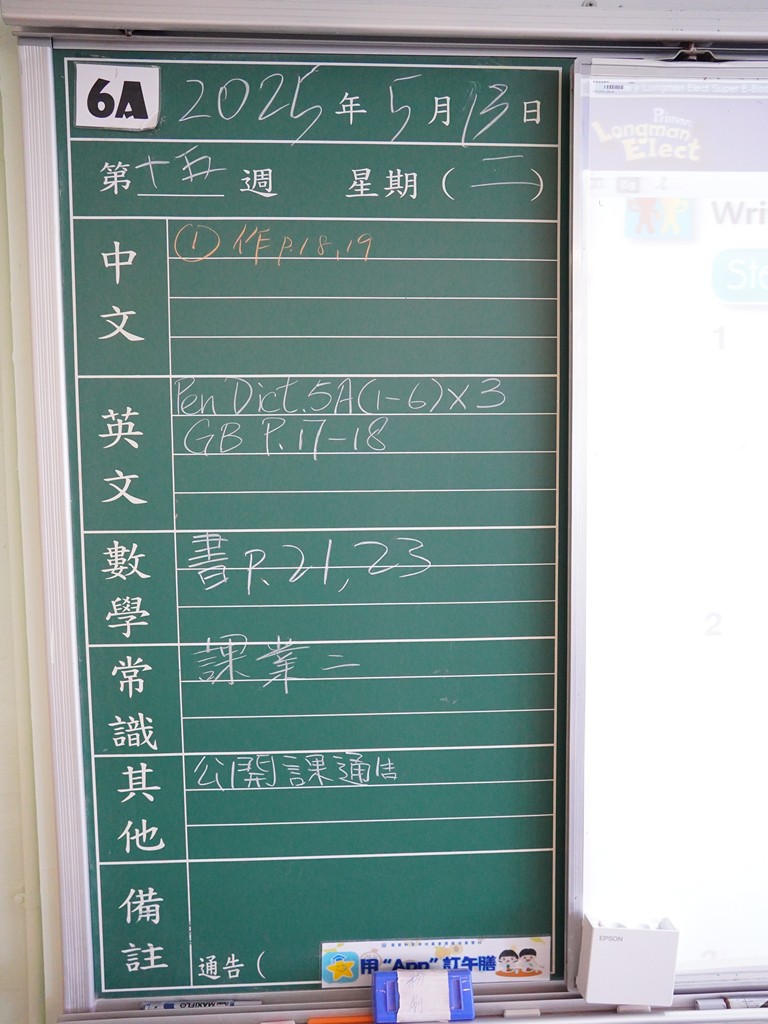 6A 2025年5月13日
第十五週 星期(二)
中文
① 作 P.18,19
英文
Pen Dict. 5A(1-6)×3
GB P.17-18
數學
書 P.21,23
常識
課業二
其他
公開課通告
備註
通告(
用“App”訂午膳
MAXIFLO
Longman Elect Super E-Boo
Primary
Longman
Elect
Wri
Ste
1
2
3
EPSON